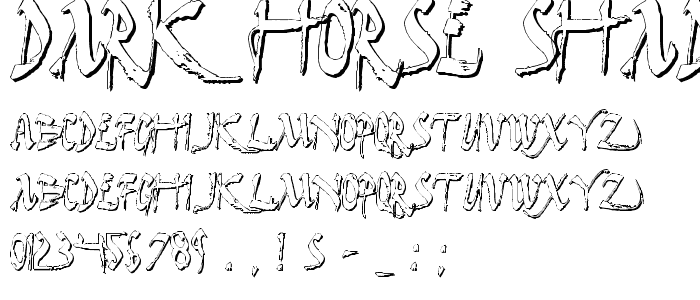 DARK HORSE SHAD
ABCDEFGHIJKLMNOPQRSTUVWXYZ
ABCDEFGHIJKLMNOPQRSTUVWXYZ
0123456789 . , ! S - _ : ;